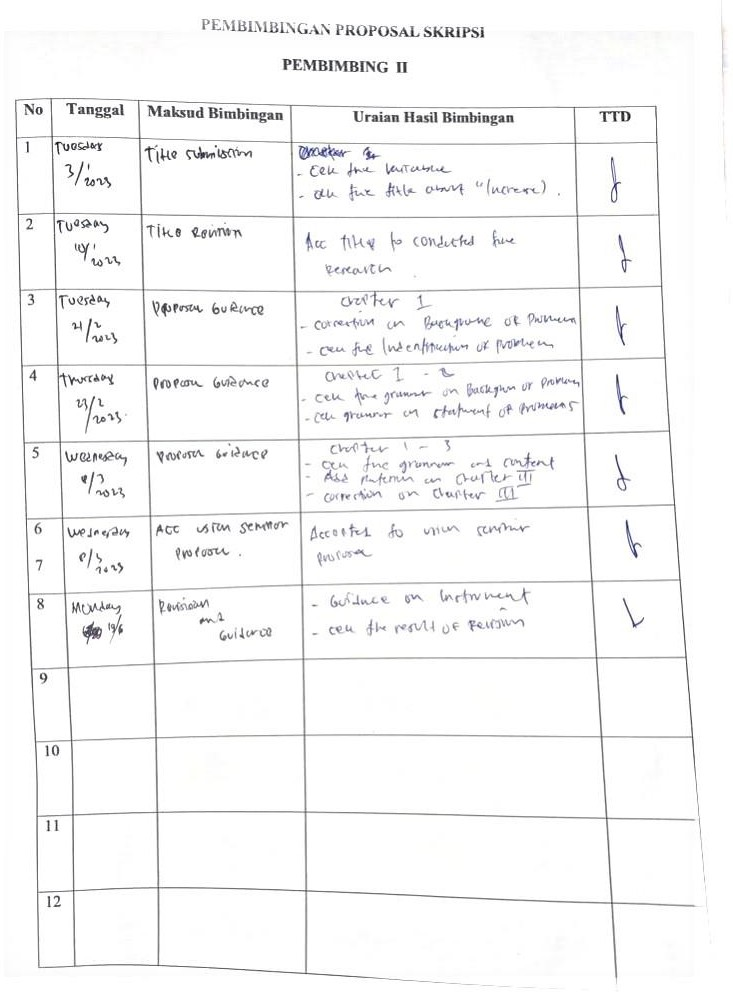 PEMBIMBINGAN PROPOSAL SKRIPSI
PEMBIMBING II
No Tanggal Maksud Bimbingan Uraian Hasil Bimbingan TTD
1 Tuesday 3/1 2023 Title submission
- Cek the variable
- cek the title about "(increase).
2 Tuesday 10/1 2023 Title Revision
Acc title to conducted the
research.
3 Tuesday 21/2 2023 Proposal Guidance
Chapter 1
- correction on Background of Problem
- cek the Indentification of problem
4 Thursday 23/2 2023. Proposal Guidance
Chapter 1 - 2
- cek the grammar on Background of Problem
- cek grammar on statement of problems
5 Wednesday 2023 Proposal Guidance
Chapter 1 - 3
- cek the grammar and content
- Add material on Chapter III
- correction on Chapter III
6 Wednesday 2023 ACC ujian seminar
proposal.
Accepted to ujian seminar
proposal
7
8 Monday 19/6 Revision
and
Guidance
- Guidance on Instrument
- cek the result of Revision
9
10
11
12